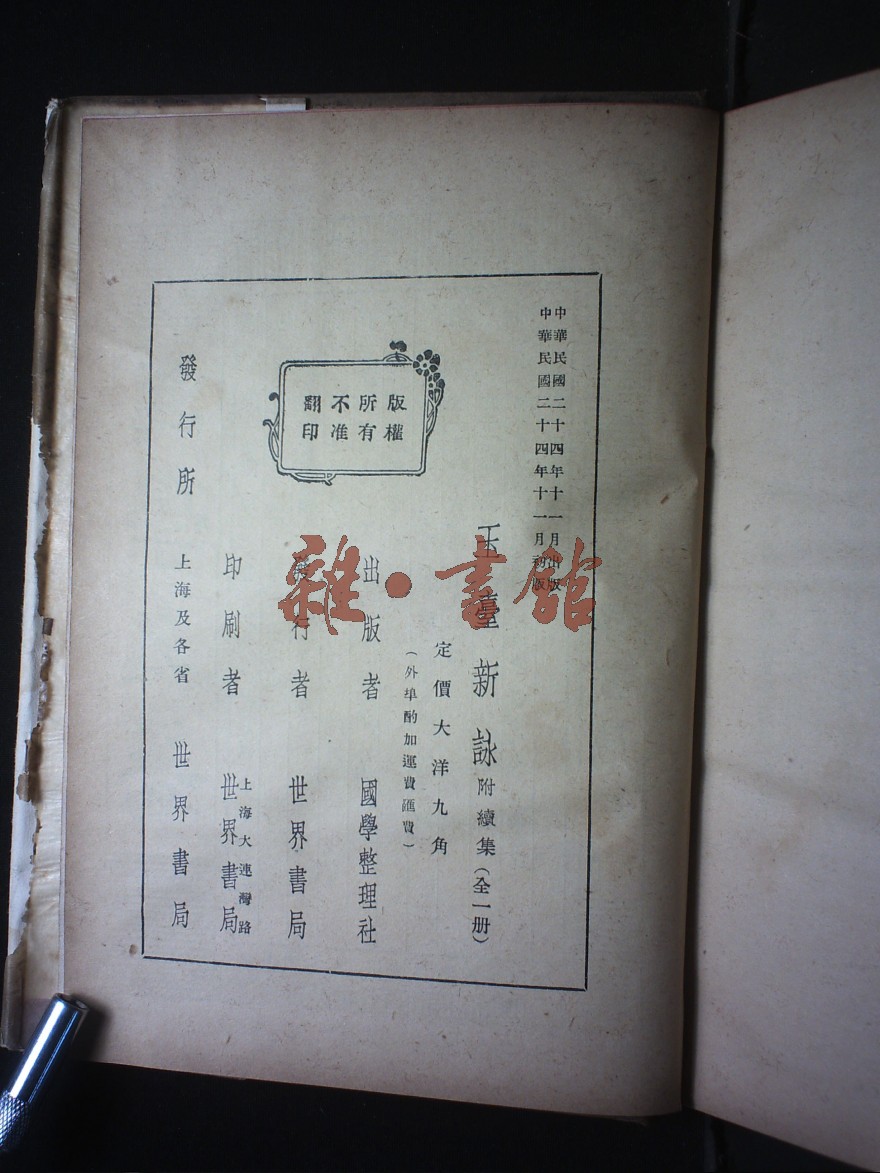 中華民國二十四年十一月出版
中華民國二十四年十一月初版
玉臺新詠附續集(全一册)
定價大洋九角
(外埠酌加運費匯費)
版權所有不准翻印
出版者 國學整理社
發行者 世界書局
上海大連灣路
印刷者 世界書局
發行所 上海及各省 世界書局
雜·書館